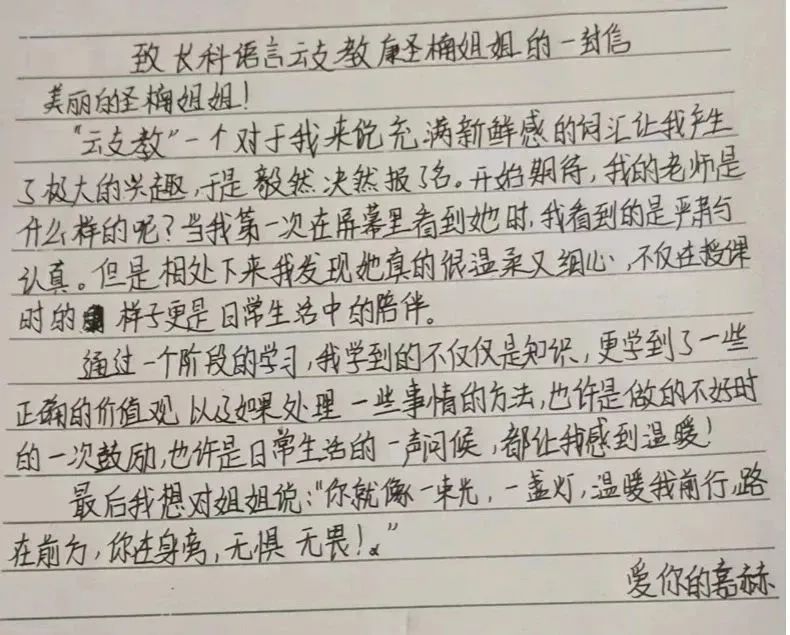 致长科语言云支教康圣楠姐姐的一封信
美丽的圣楠姐姐！
“云支教”一个对于我来说充满新鲜感的词汇让我产生
了极大的兴趣，于是毅然决然报了名。开始期待，我的老师是
什么样的呢？当我第一次在屏幕里看到她时，我看到的是严肃与
认真。但是相处下来我发现她真的很温柔又细心，不仅在授课
时的样子更是日常生活中的陪伴。
通过一个阶段的学习，我学到的不仅仅是知识，更学到了一些
正确的价值观以及如果处理一些事情的方法，也许是做的不好时
的一次鼓励，也许是日常生活的一声问候，都让我感到温暖！
最后我想对姐姐说：“你就像一束光，一盏灯，温暖我前行，路
在前方，你在身旁，无惧无畏！。”
爱你的嘉赫